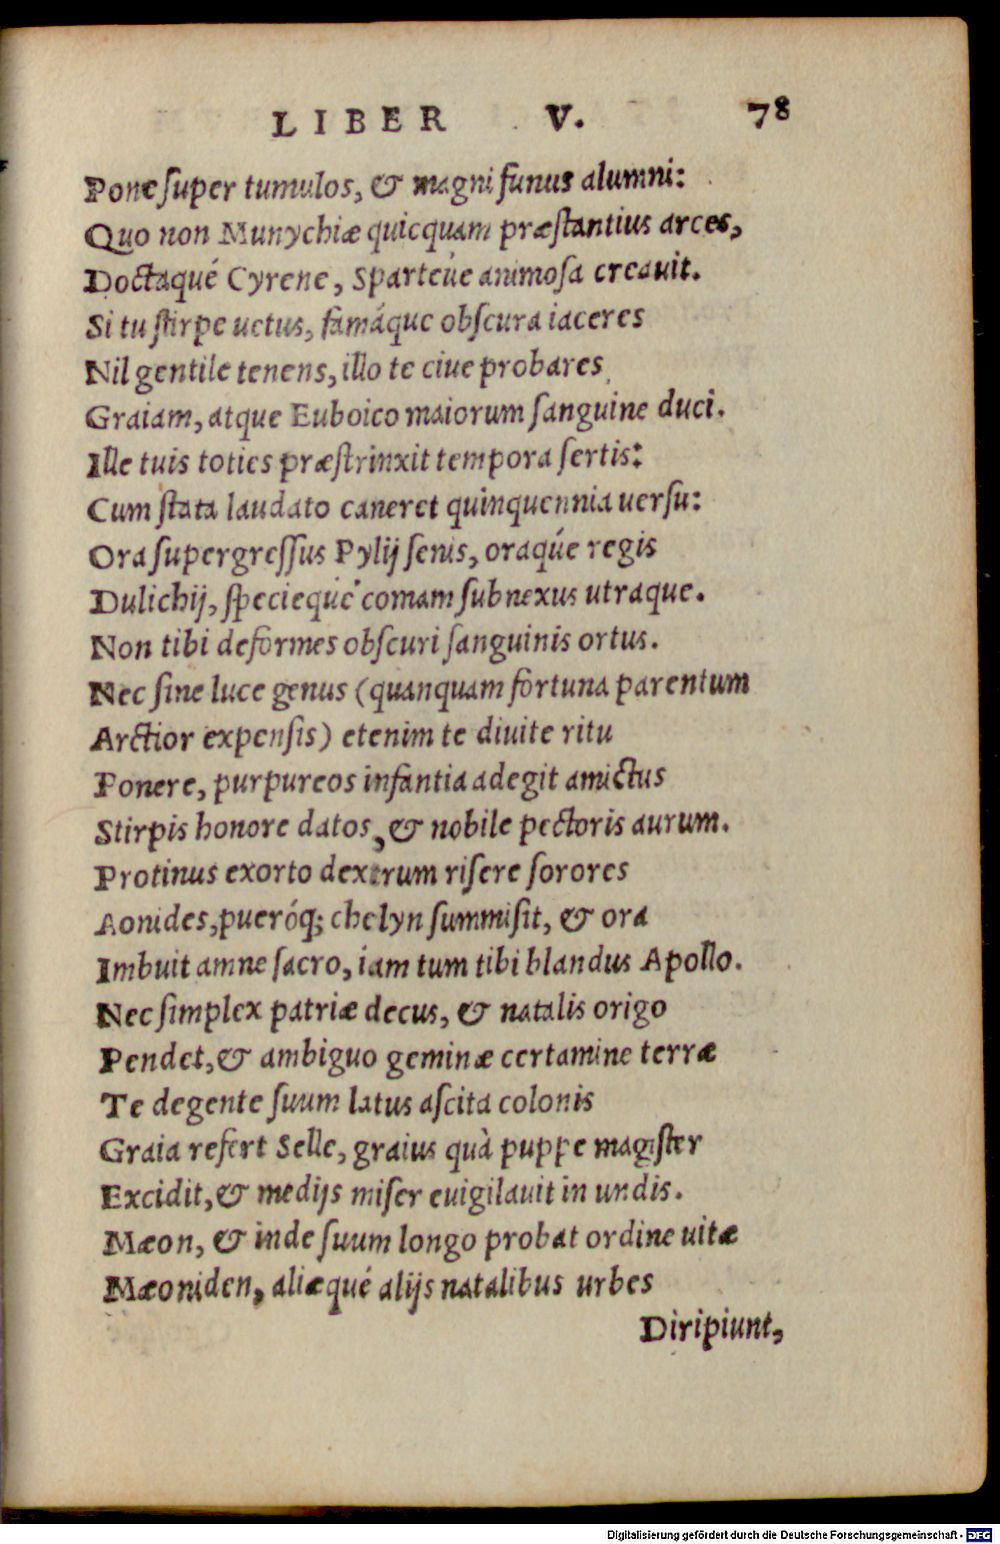 LIBER V. 78
Pone super tumulos, & magni funus alumni:
Quo non Munychiæ quicquam præstantius arces,
Doctaqué Cyrene, Sparteúe animosa creauit.
Si tu stirpe uetus, famáque obscura iaceres
Nil gentile tenens, illo te ciue probares
Graiam, atque Euboico maiorum sanguine duci.
Ille tuis toties præstrinxit tempora sertis:
Cum stata laudato caneret quinquennia uersu:
Ora supergressus Pylij senis, oraqúe regis
Dulichij, speciequé comam subnexus utraque.
Non tibi deformes obscuri sanguinis ortus.
Nec sine luce genus (quanquam fortuna parentum
Arctior expensis) etenim te diuite ritu
Ponere, purpureos infantia adegit amictus
Stirpis honore datos, & nobile pectoris aurum.
Protinus exorto dextrum risere sorores
Aonides, pueróq; chelyn summisit, & ora
Imbuit amne sacro, iam tum tibi blandus Apollo.
Nec simplex patriæ decus, & natalis origo
Pendet, & ambiguo geminæ certamine terræ
Te degente suum latus ascita colonis
Graia refert Selle, graius quà puppe magister
Excidit, & medijs miser euigilauit in undis.
Mæon, & inde suum longo probat ordine uitæ
Mæoniden, aliæqué alijs natalibus urbes
Diripiunt,
Digitalisierung gefördert durch die Deutsche Forschungsgemeinschaft - DFG